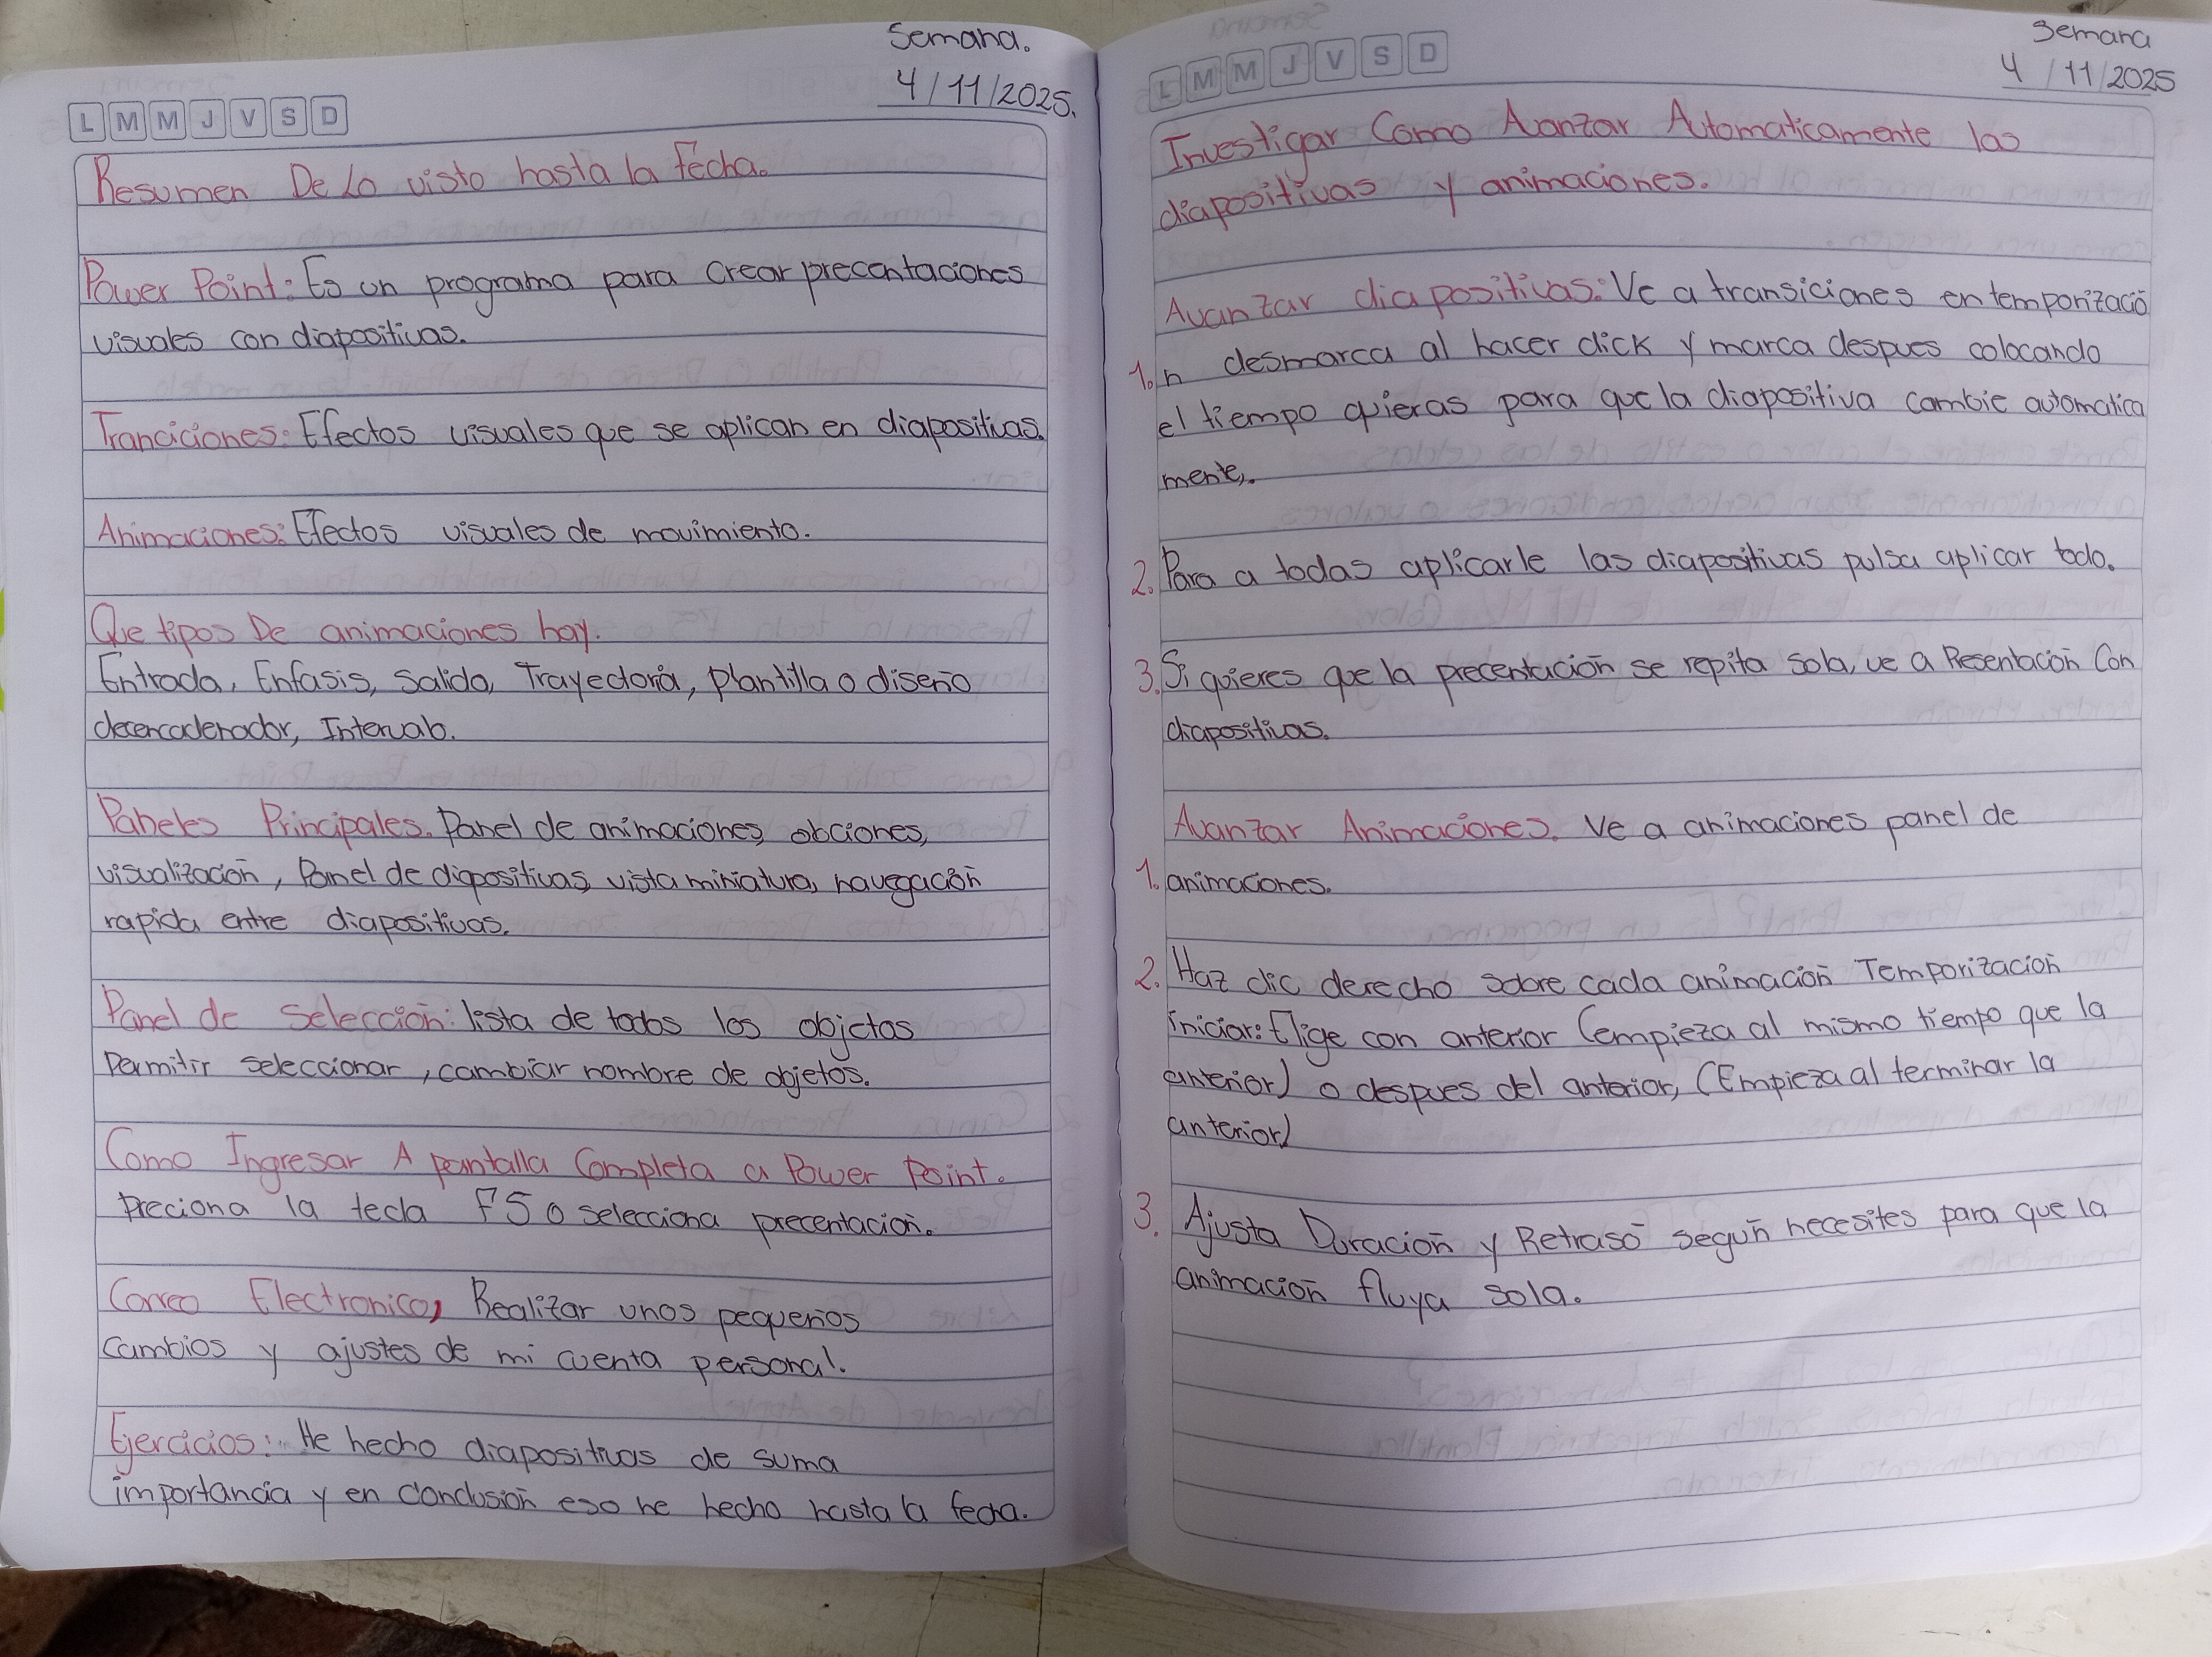 Semana.
4/11/2025.
L M M J V S D
Resumen De Lo visto hasta la fecha.
Power Point: Es un programa para crear precentaciones
visuales con diapositivas.
Tranciciones: Efectos visuales que se aplican en diapositivas.
Animaciones: Efectos visuales de movimiento.
Que tipos De animaciones hay.
Entrada, Enfasis, Salida, Trayectoria, plantilla o diseño
decencadenador, Intervalo.
Paneles Principales. Panel de animaciones, obciones,
visualización, Panel de diapositivas, vista miniatura, navegación
rapida entre diapositivas.
Panel de Selección: lista de todos los objetos
Permitir seleccionar, cambiar nombre de objetos.
Como Ingresar A pantalla Completa a Power Point.
Preciona la tecla F5 o selecciona precentacion.
Correo Electronico, Realizar unos pequeños
cambios y ajustes de mi cuenta personal.
Ejercicios: He hecho diapositivas de suma
importancia y en conclusión eso he hecho hasta la fecha.
Semana
4/11/2025
L M M J V S D
Investigar Como Avanzar Automaticamente las
diapositivas y animaciones.
Avanzar diapositivas: Ve a transiciones en temporizació
1. n desmarca al hacer click y marca despues colocando
el tiempo quieras para que la diapositiva cambie automatica
mente,.
2. Para a todas aplicarle las diapositivas pulsa aplicar todo.
3. Si quieres que la precentación se repita sola, ve a Presentación Con
diapositivas.
Avanzar Animaciones. Ve a animaciones panel de
1. animaciones.
2. Haz clic derecho sobre cada animación Temporización
iniciar: Elige con anterior (empieza al mismo tiempo que la
anterior) o despues del anterior, (Empieza al terminar la
anterior)
3. Ajusta Duración y Retraso según necesites para que la
animación fluya sola.